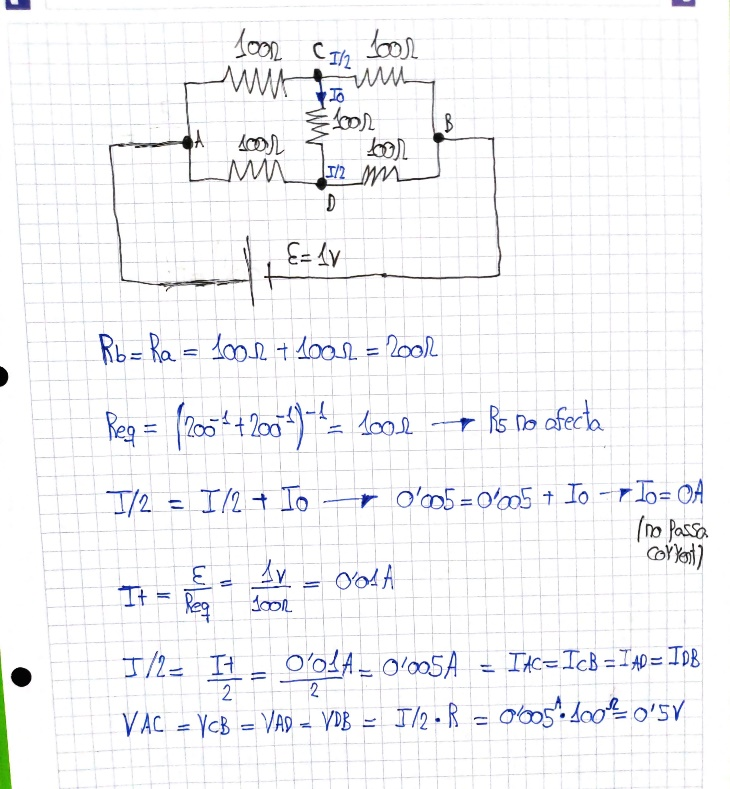 100Ω C I/2 100Ω
I0
100Ω
A 100Ω 100Ω B
I/2
D
Ɛ=1V
Rb=Ra = 100Ω + 100Ω = 200Ω
Req = (200⁻¹+200⁻¹)⁻¹ = 100Ω → R5 no afecta
I/2 = I/2 + I0 → 0'005=0'005 + I0 → I0=0A
(no passa
corrent)
It = Ɛ/Req = 1V/100Ω = 0'01A
I/2= It/2 = 0'01A/2 = 0'005A = IAC=ICB=IAD=IDB
VAC = VCB = VAD = VDB = I/2·R = 0'005ᴬ·100^Ω=0'5V